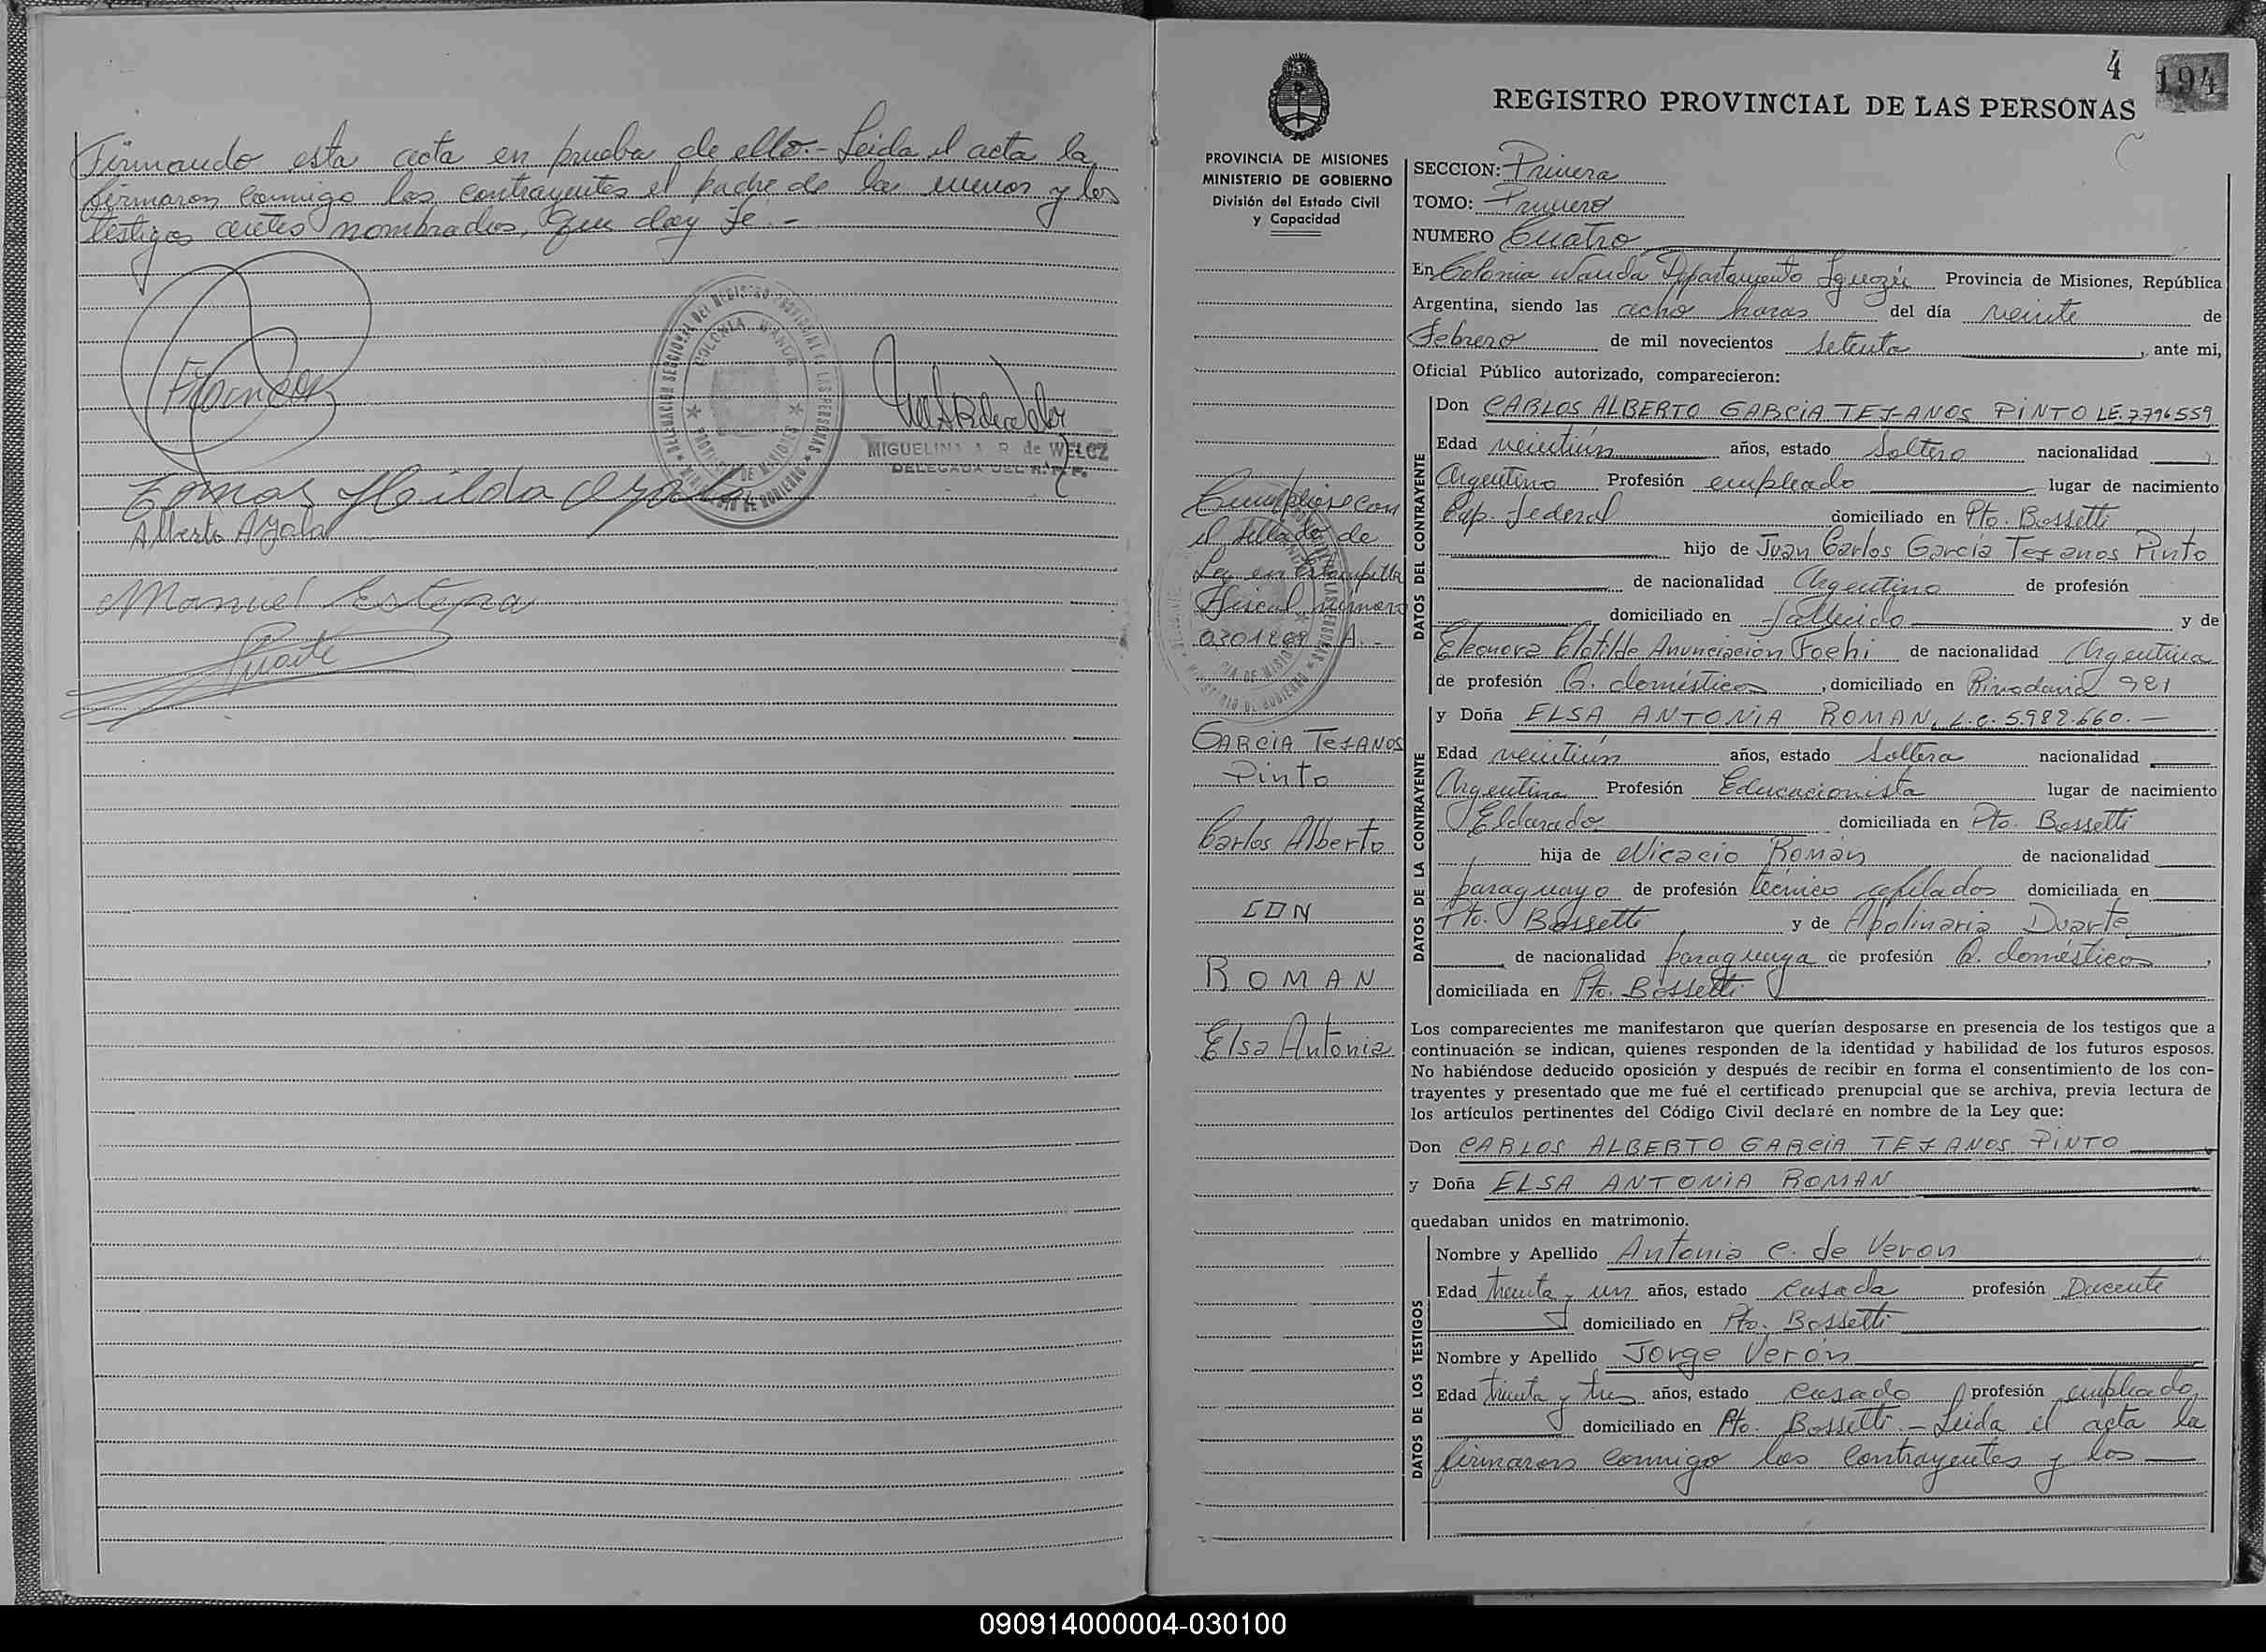 Firmando esta acta en prueba de ello.- Leida el acta la
firmaron conmigo los contrayentes el padre de la menor y los
testigos antes nombrados, que doy fe.-
DELEGACION SECCIONAL DEL REGISTRO PROVINCIAL DE LAS PERSONAS
COLONIA WANDA
PROVINCIA DE MISIONES
MINISTERIO DE GOBIERNO
MIGUELINA A. R. de WELCZ
DELEGADA DEL R.P.P.
Hilda Ayala
Alberto Ayala
Manuel Estepa
Duarte
4
194
REGISTRO PROVINCIAL DE LAS PERSONAS
PROVINCIA DE MISIONES
MINISTERIO DE GOBIERNO
División del Estado Civil
y Capacidad
Cumpliose con
el sellado de
Ley en Estampilla
Fiscal número
A.-
GARCIA TEZANOS
Pinto
Carlos Alberto
CON
ROMAN
Elsa Antonia
SECCION: Primera
TOMO: Primero
NUMERO Cuatro
En Colonia Wanda Departamento Iguazú Provincia de Misiones, República
Argentina, siendo las ocho horas del día veinte de
Febrero de mil novecientos setenta, ante mi,
Oficial Público autorizado, comparecieron:
DATOS DEL CONTRAYENTE
Don CARLOS ALBERTO GARCIA TEZANOS PINTO LE.7796559
Edad veintiún años, estado Soltero nacionalidad
Argentino Profesión empleado lugar de nacimiento
Cap. Federal domiciliado en Pto. Bossetti
hijo de Juan Carlos García Tezanos Pinto
de nacionalidad Argentino de profesión
domiciliado en fallecido y de
Eleonora Clotilde Anunciacion Fochi de nacionalidad Argentina
de profesión Q. domésticos, domiciliado en Rivadavia 981
DATOS DE LA CONTRAYENTE
y Doña ELSA ANTONIA ROMAN, L.C. 5.982.660.-
Edad veintiún años, estado Soltera nacionalidad
Argentina Profesión Educacionista lugar de nacimiento
Eldorado domiciliada en Pto. Bossetti
hija de Nicacio Román de nacionalidad
paraguayo de profesión técnico domiciliada en
Pto. Bossetti y de Apolinaria Duarte
de nacionalidad paraguaya de profesión Q. domésticos,
domiciliada en Pto. Bossetti
Los comparecientes me manifestaron que querían desposarse en presencia de los testigos que a
continuación se indican, quienes responden de la identidad y habilidad de los futuros esposos.
No habiéndose deducido oposición y después de recibir en forma el consentimiento de los con-
trayentes y presentado que me fué el certificado prenupcial que se archiva, previa lectura de
los artículos pertinentes del Código Civil declaré en nombre de la Ley que:
Don CARLOS ALBERTO GARCIA TEZANOS PINTO
y Doña ELSA ANTONIA ROMAN
quedaban unidos en matrimonio.
DATOS DE LOS TESTIGOS
Nombre y Apellido Antonia C. de Veron
Edad treinta y un años, estado casada profesión Docente
domiciliado en Pto. Bossetti
Nombre y Apellido Jorge Verón
Edad treinta y tres años, estado casado profesión empleado
domiciliado en Pto. Bossetti.- Leida el acta la
firmaron conmigo los contrayentes y los
090914000004-030100